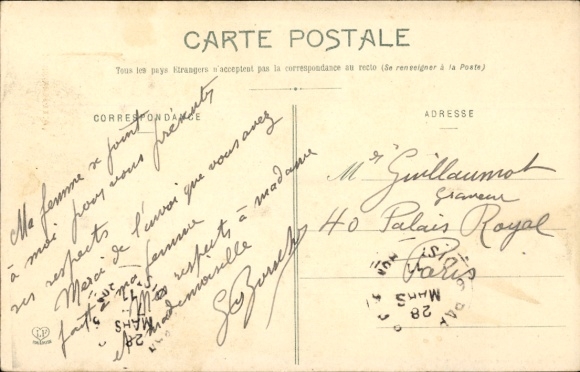 CARTE POSTALE
Tous les pays Etrangers n'acceptent pas la correspondance au recto (Se renseigner à la Poste)
CORRESPONDANCE
Ma femme se joint
à moi pour vous présenter
ses respects
Merci de l'envoi que vous avez
fait à ma femme
respects à madame
et mademoiselle
ADRESSE
Mr Guillaumot
Graveur
40 Palais Royal
Paris
28
MARS
28
MARS